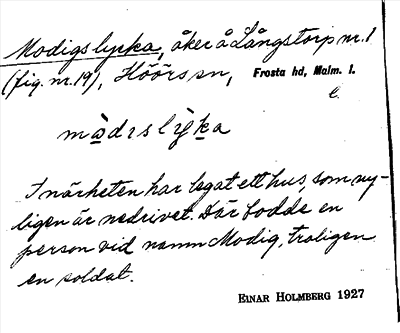 Modigslycka, åker å Långstorp nr. 1
(fig. nr. 19), Höörs sn, Frosta hd, Malm. l.
l.
mɑ̀dɪslỳka
I närheten har legat ett hus, som ny-
ligen är nedrivet. Där bodde en
person vid namn Modig, troligen
en soldat.
EINAR HOLMBERG 1927